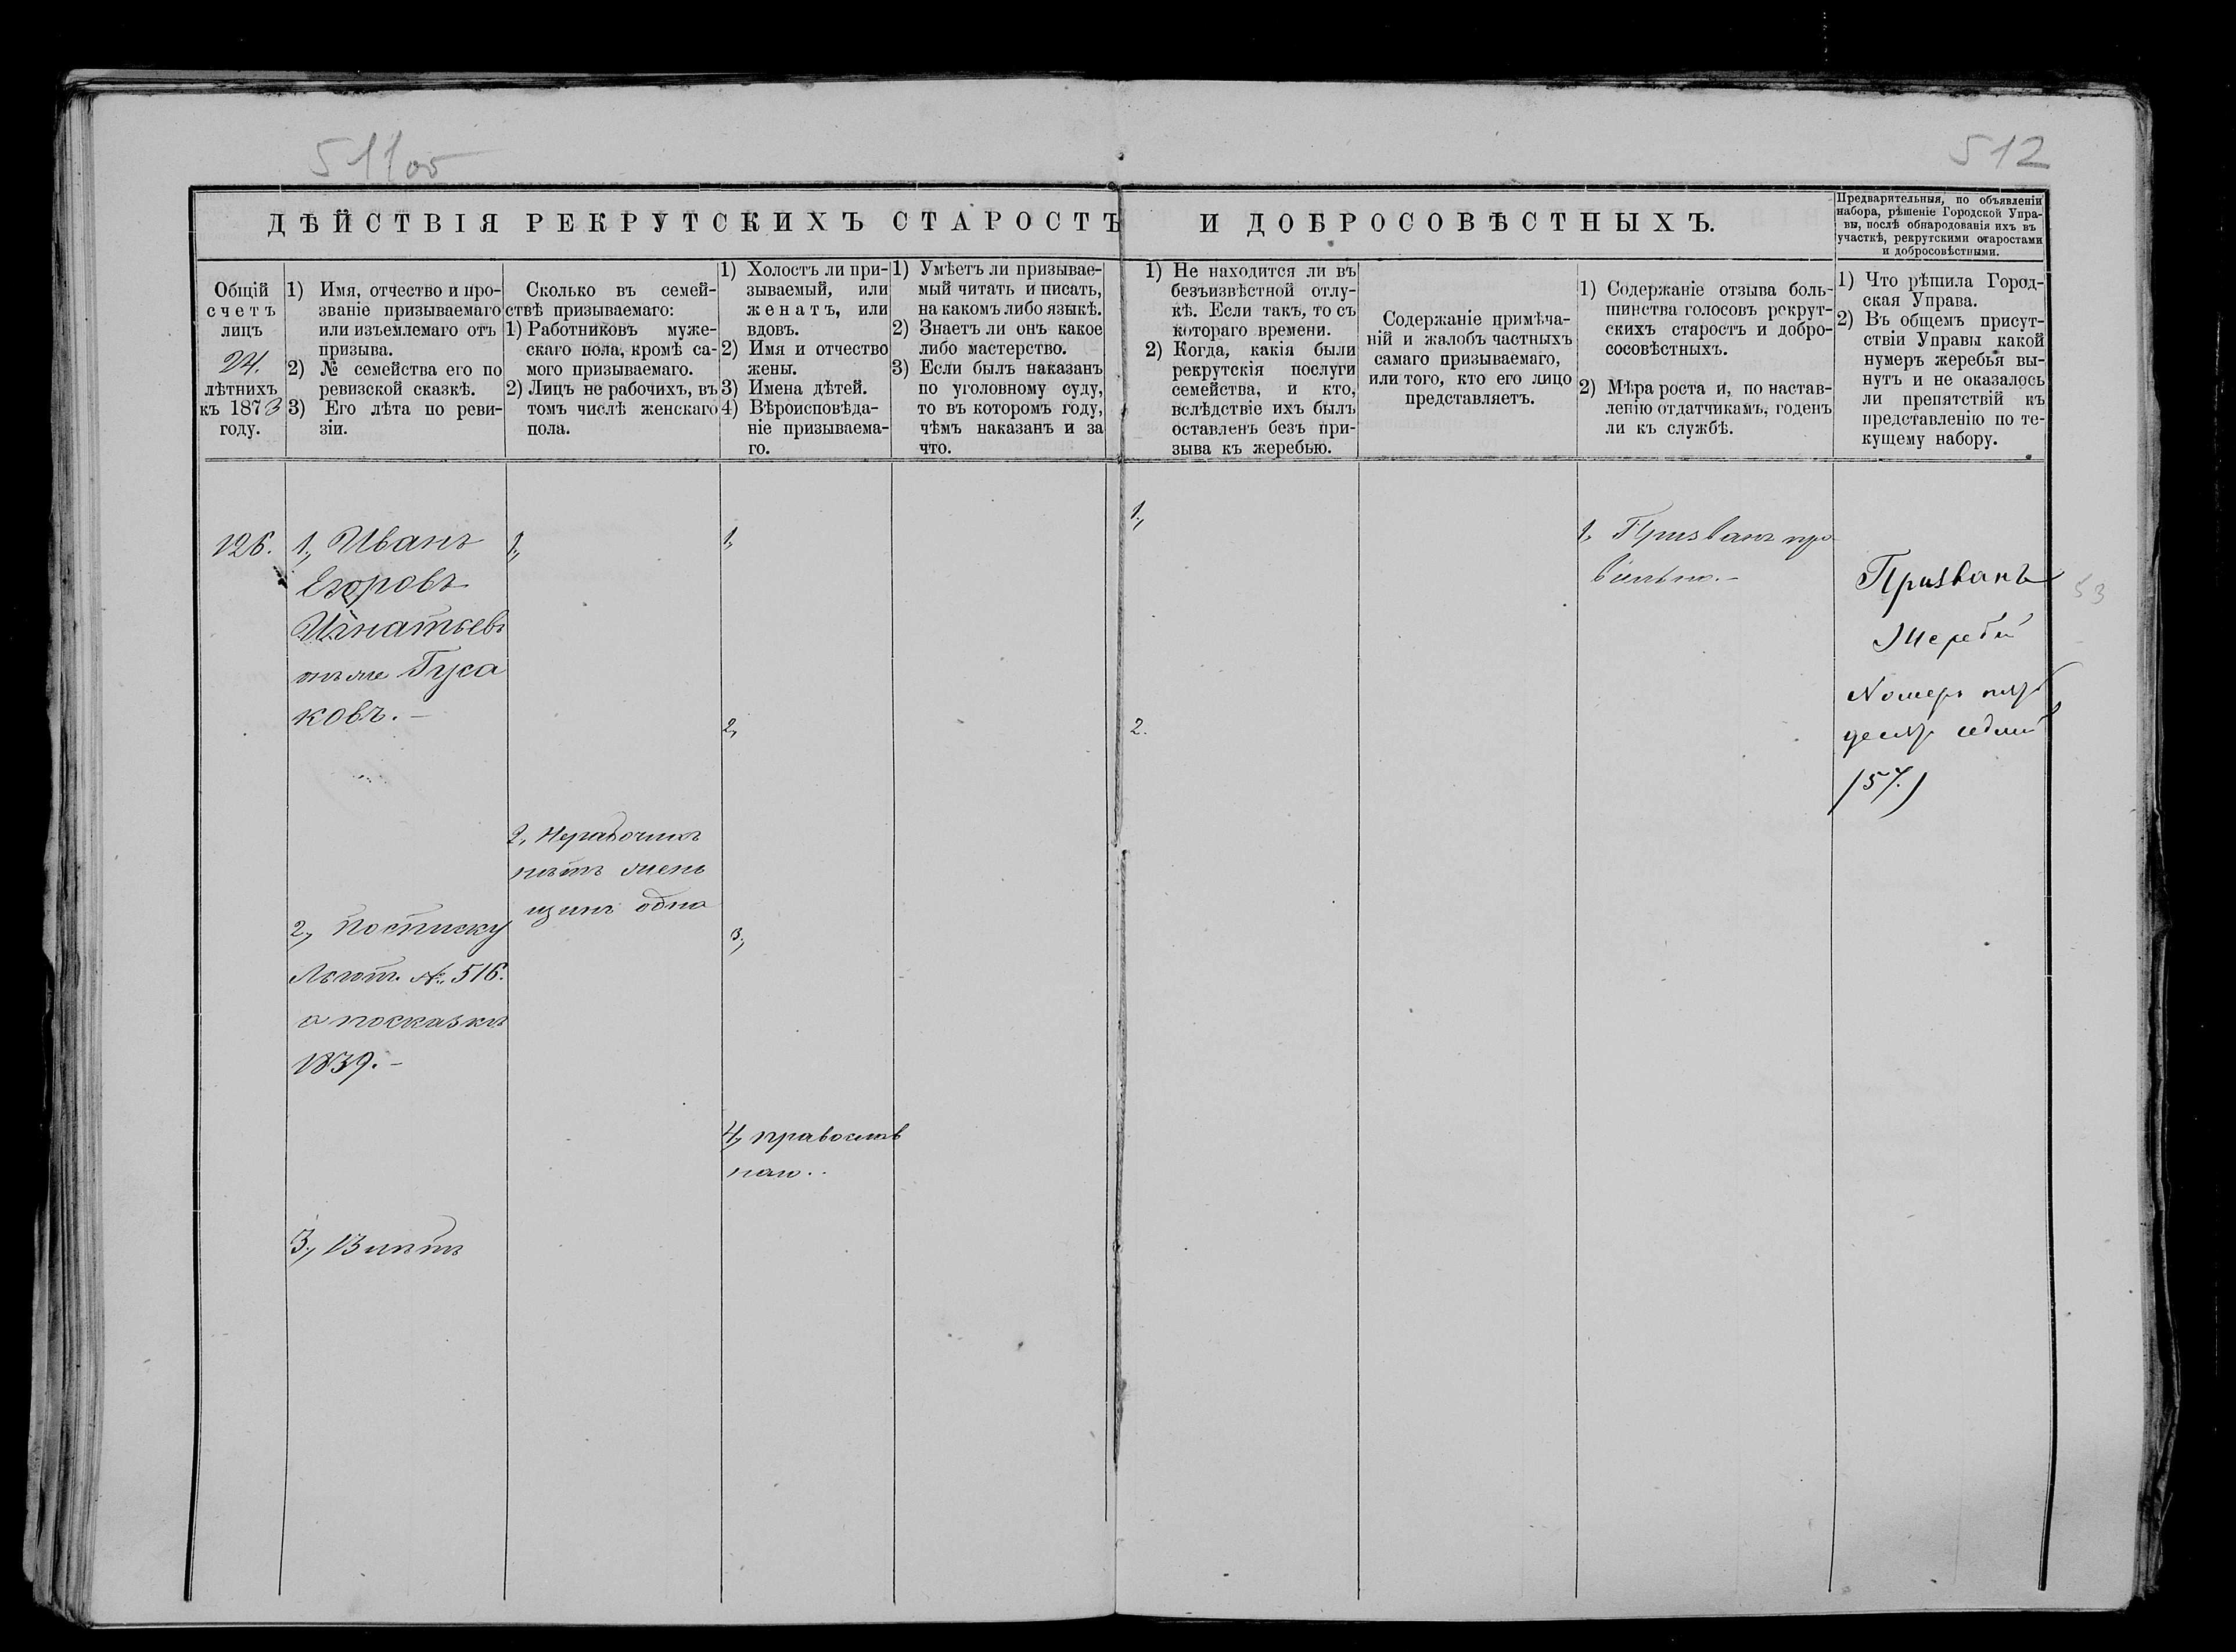 511об
512
ДѢЙСТВІЯ РЕКРУТСКИХЪ СТАРОСТЪ И ДОБРОСОВѢСТНЫХЪ.
Предварительныя, по объявленіи
набора, рѣшеніе Городской Упра-
вы, послѣ обнародованія ихъ въ
участкѣ, рекрутскими старостами
и добросовѣстными.
Общій
счетъ
лицъ
24.
лѣтнихъ
къ 1873
году.
1) Имя, отчество и про-
званіе призываемаго
или изъемлемаго отъ
призыва.
2) № семейства его по
ревизской сказкѣ.
3) Его лѣта по реви-
зіи.
Сколько въ семей-
ствѣ призываемаго:
1) Работниковъ муже-
скаго пола, кромѣ са-
мого призываемаго.
2) Лицъ не рабочихъ, въ
томъ числѣ женскаго
пола.
1) Холостъ ли при-
зываемый, или
женатъ, или
вдовъ.
2) Имя и отчество
жены.
3) Имена дѣтей.
4) Вѣроисповѣда-
ніе призываема-
го.
1) Умѣетъ ли призывае-
мый читать и писать,
на какомъ либо языкѣ.
2) Знаетъ ли онъ какое
либо мастерство.
3) Если былъ наказанъ
по уголовному суду,
то въ которомъ году,
чѣмъ наказанъ и за
что.
1) Не находится ли въ
безъизвѣстной отлу-
кѣ. Если такъ, то съ
котораго времени.
2) Когда, какія были
рекрутскія послуги
семейства, и кто,
вслѣдствіе ихъ былъ
оставленъ безъ при-
зыва къ жеребью.
Содержаніе примѣча-
ній и жалобъ частныхъ
самаго призываемаго,
или того, кто его лицо
представляетъ.
1) Содержаніе отзыва боль-
шинства голосовъ рекрут-
скихъ старостъ и добро-
сосовѣстныхъ.
2) Мѣра роста и, по настав-
ленію отдатчикамъ, годенъ
ли къ службѣ.
1) Что рѣшила Город-
ская Управа.
2) Въ общемъ присут-
ствіи Управы какой
нумеръ жеребья вы-
нутъ и не оказалось
ли препятствій къ
представленію по те-
кущему набору.
126.
1, Иванъ
Егоровъ
Игнатьевъ
онъ же Гуса
ковъ.-
2, По списку
Льгот. №. 516.
а по сказкѣ
1839.-
3, 13 лѣтъ
1,
2, Нерабочихъ
нѣтъ жен
щинъ одна
1,
2,
3,
4, православ
наго..
1,
2.
1, Призванъ пра
вильно.-
Призванъ
Жребій
Номеръ пять
десятъ седмый
(57.)
53